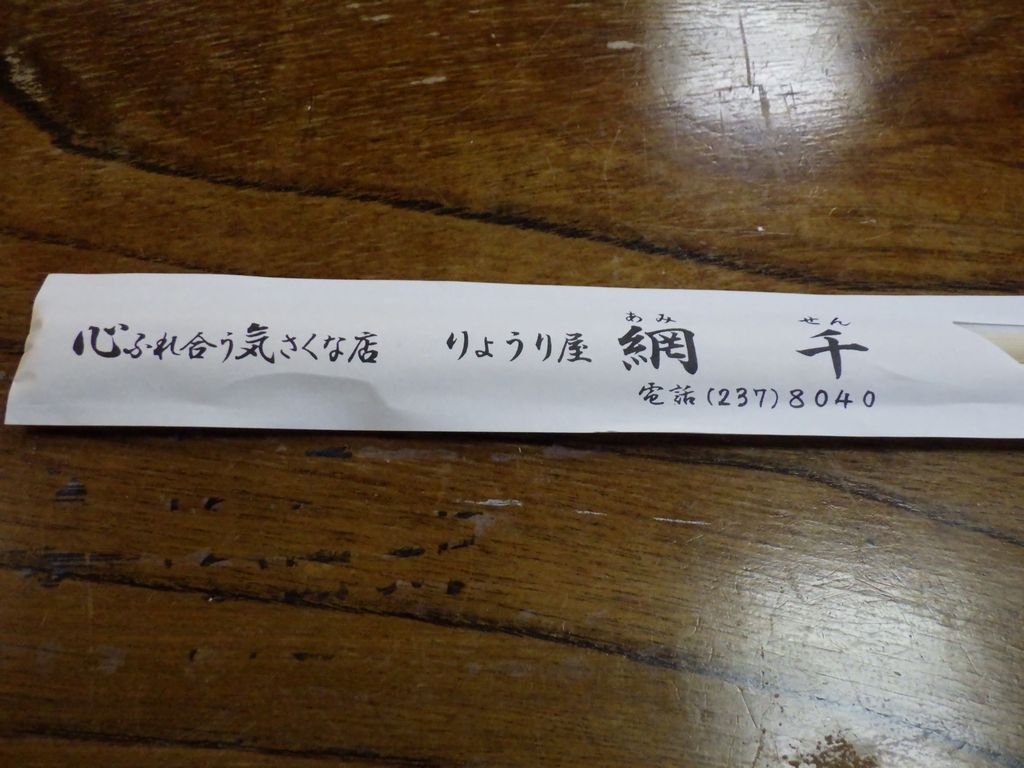 心ふれ合う気さくな店 りょうり屋 網千
あみ せん
電話(237)8040